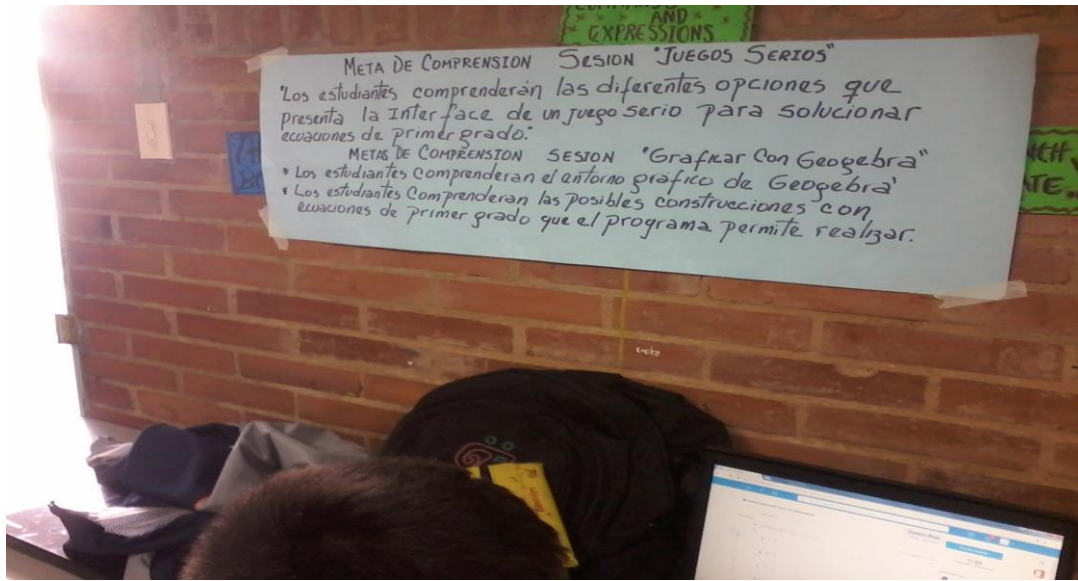 AND
EXPRESSIONS
META DE COMPRENSION SESION "JUEGOS SERIOS"
"Los estudiantes comprenderán las diferentes opciones que
presenta la Interface de un juego serio para solucionar
ecuaciones de primer grado."
METAS DE COMPRENSION SESION "Graficar Con Geogebra"
• Los estudiantes Comprenderan el entorno gráfico de Geogebra"
• Los estudiantes Comprenderan las posibles construcciones con
ecuaciones de primer grado que el programa permite realizar.